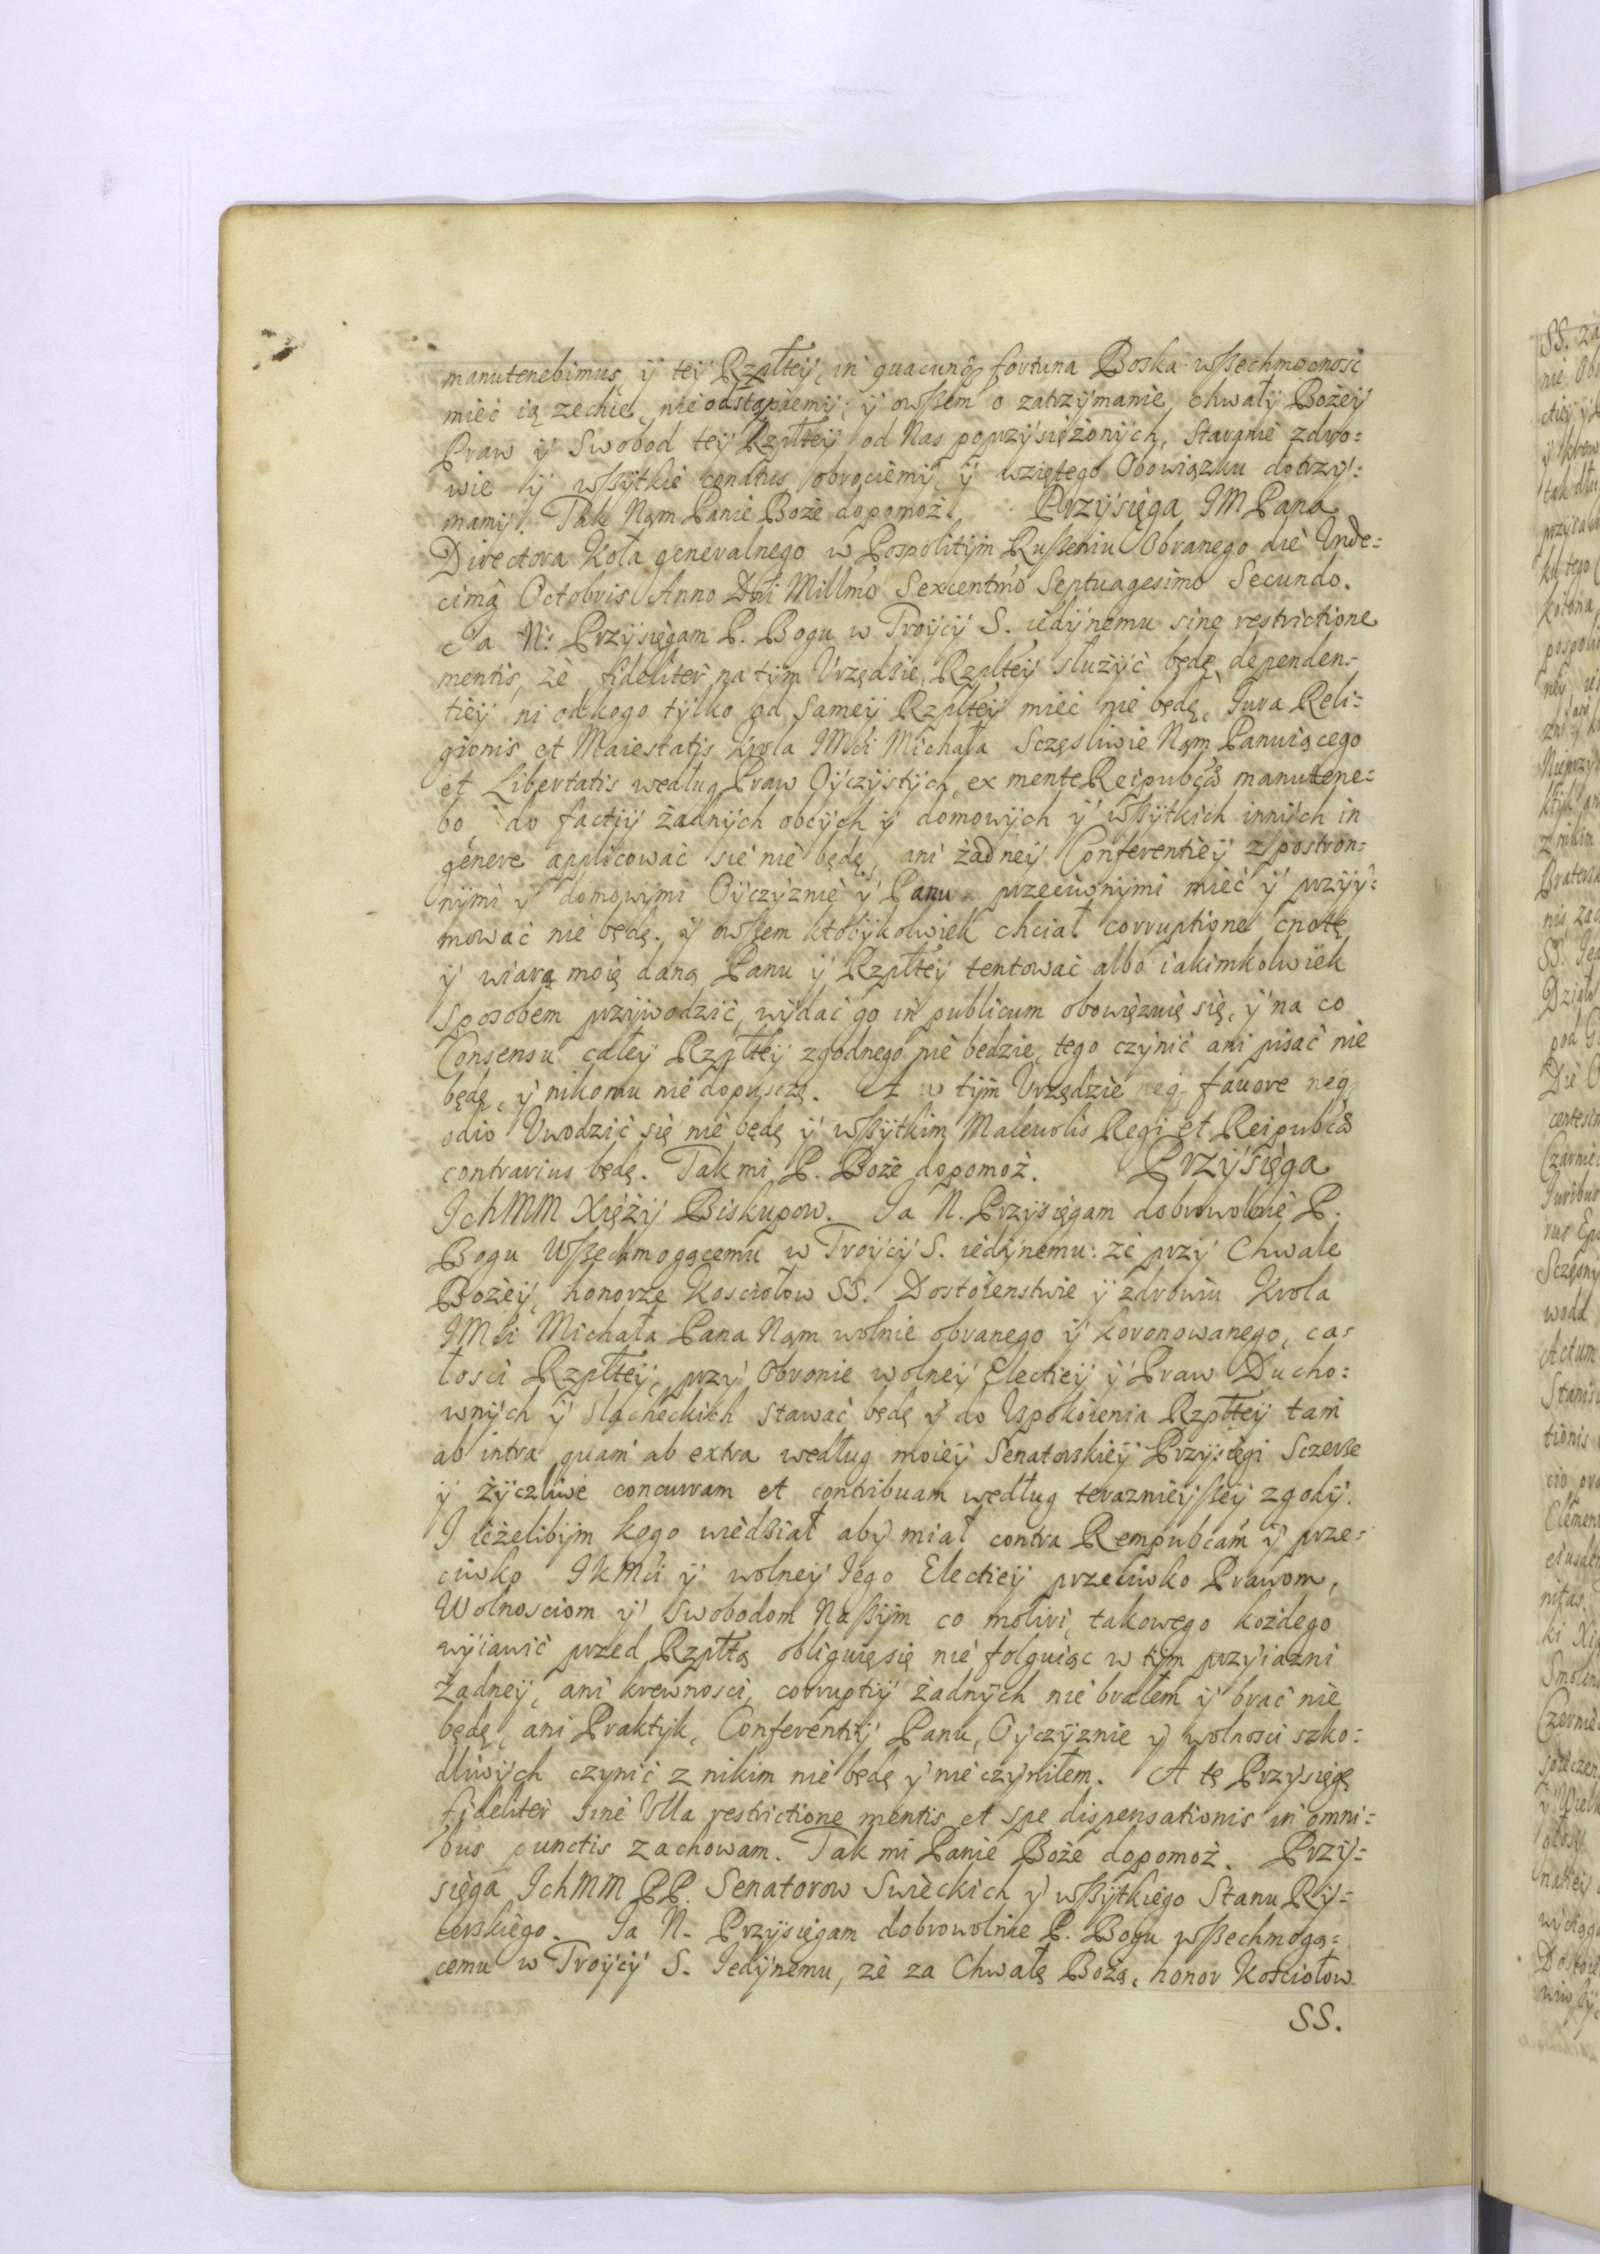 manutenebimus, ÿ teÿ Rzpłteÿ, in quacunq fortuna Boska wſzechmocnosc
mieć ią zechce, nie odstąpiemÿ; ÿ owſzem o zatrzÿmanie chwałÿ Bożeÿ
Praw ÿ Swobod teÿ Rzpłteÿ od Nas poprzÿsiężonÿch, staranie zdro=
wie ÿ wſzÿtkie conatus obrociemÿ, ÿ wziętego Obowiązku dotrzÿ=
mamÿ. Tak Nąm Panie Boże dopomoż. Przÿsięga IM Pana
Directora Koła generalnego w Pospolitÿm Ruſzeniu Obranego die Vnde=
cimâ Octobris Anno Dni Millmo Sexcentmo Septuagesimo Secundo.
Ia N. Przÿsięgam P. Bogu w Troÿcÿ S. iedÿnemu sine restrictione
mentis, że fideliter na tÿm Vrzędzie Rzpłteÿ służÿć będę, dependen=
tieÿ ni odkogo tÿlko od Sameÿ Rzpłteÿ mieć nie będę, Iura Reli=
gionis et Maiestatis Krola IMci Michała Sczęsliwie Nąm Panuiącego
et Libertatis według Praw Oÿczÿstÿch, ex mente Reipublcæ manutene=
bo, do factiÿ żadnÿch obcÿch ÿ domowÿch ÿ wſzÿtkich innÿch in
genere applicować sie nie będę, ani żadneÿ Conferentieÿ z postron=
nÿmi ÿ domowÿmi Oÿczÿznie ÿ Panu przeciwnÿmi mieć ÿ przÿÿ=
mować nie będę. ÿ owſzem ktobÿkolwiek chciał corruptione cnotę
ÿ wiarą moię daną Panu ÿ Rzpłteÿ tentować albo iakimkolwiek
Sposobem przÿwodzić, wÿdać go in publicum obowięzuię się, ÿ na co
Consensu całeÿ Rzpłteÿ zgodnego nie będzie, tego czÿnić ani pisać nie
będę, ÿ nikomu nie dopusczę. A w tÿm Vrzędzie neq favore neq
odio Vwodzić się nie będę ÿ wſzÿtkim Malevolis Regi et Reipubcæ
contrarius będę. Tak mi P. Boże dopomoż. Przÿsięga
IchMM Xiężÿ Biskupow. Ia N. Przÿsięgam dobrowolnie P.
Bogu Wſzechmogącemu w Troÿcÿ S. iedÿnemu: że przÿ Chwale
Bożeÿ, honorze Kosciołow SS. Dostoienstwie ÿ zdrowiu Krola
IMci Michała Pana Nąm wolnie obranego ÿ koronowanego, ca=
łosci Rzpłteÿ, przÿ Obronie wolneÿ Electieÿ ÿ Praw Ducho=
wnÿch ÿ slacheckich stawać będę ÿ do Uspokoienia Rzpłteÿ tam
ab intra quam ab extra według moieÿ Senatorskieÿ Przÿsięgi Sczerze
ÿ żÿczliwe concurram et contribuam według teraznieÿſzeÿ zgodÿ.
I ieżelibÿm kogo wiedział abÿ miał contra Rempubcam ÿ prze=
ciwko IKMci ÿ wolneÿ Iego Electieÿ przeciwko Prawom,
Wolnosciom ÿ Swobodom Naſzÿm co moliri, takowego każdego
wÿiawić przed Rzpłtą obliguięsię nie folguiąc w tÿm przÿiazni
Żadneÿ, ani krewnosci, corruptiÿ żadnÿch nie brałem ÿ brać nie
będę, ani Praktÿk, Conferentiÿ Panu, Oÿczÿznie ÿ wolnosci szko=
dliwÿch czÿnić z nikim nie będę ÿ nie czÿniłem. A tę Przÿsięgę
fideliter sine Ulla restrictione mentis et spe dispensationis in omni=
bus punctis zachowam. Tak mi Panie Boże dopomoż. Przÿ=
sięga IchMM PP. Senatorow Swieckich ÿ wſzÿtkiego Stanu Rÿ=
cerskiego. Ia N. Przÿsięgam dobrowolnie P. Bogu wſzechmogą=
cemu w Troÿcÿ S. Iedÿnemu, że za Chwałę Bożą, honor Kosciołow
SS.